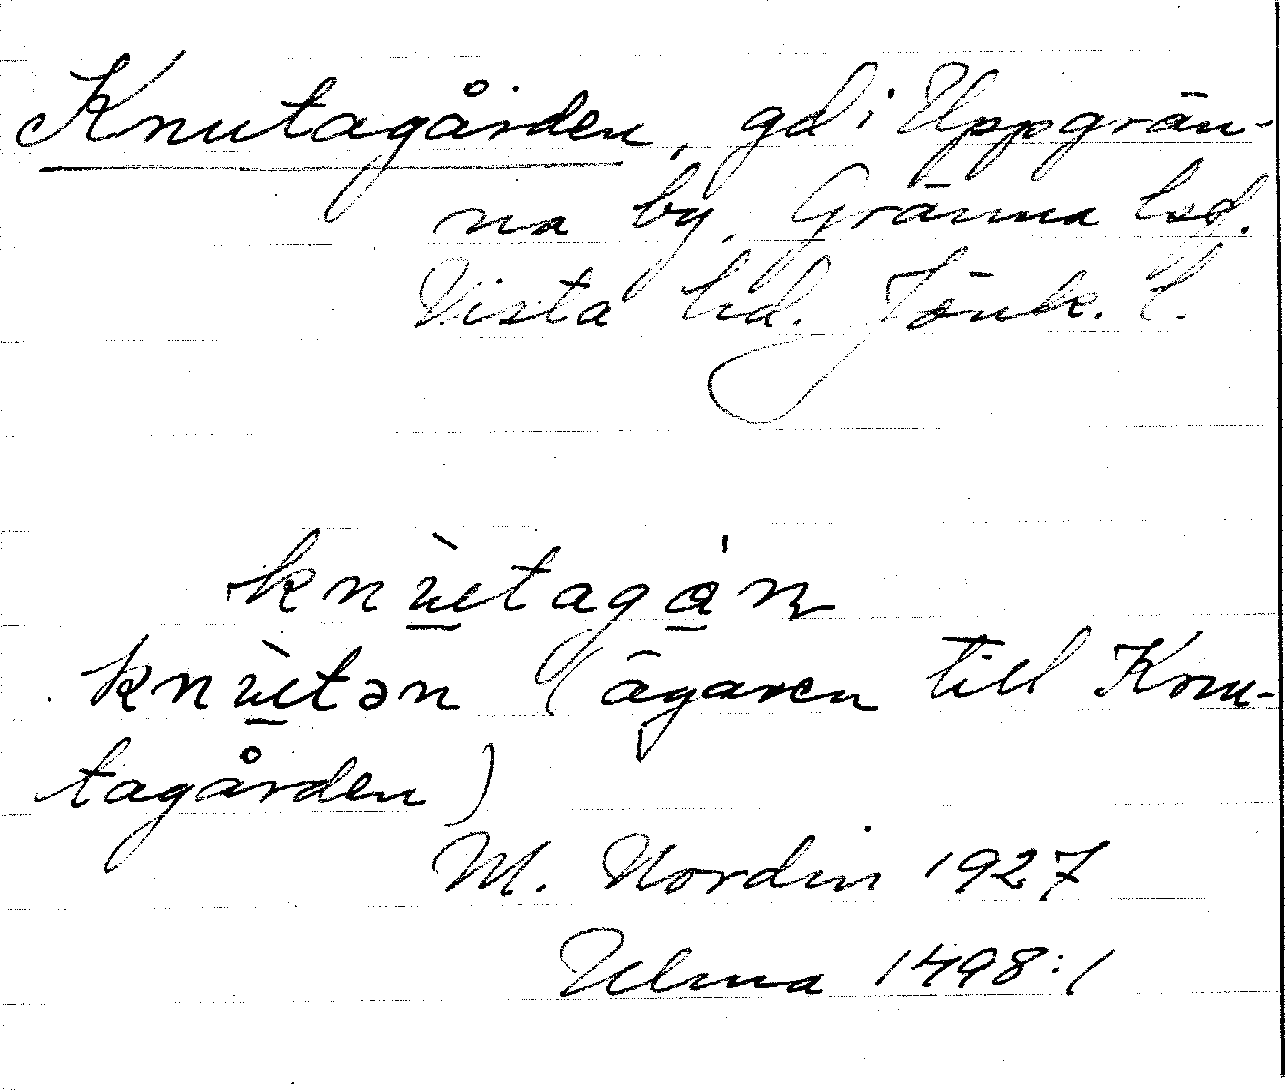 Knutagården, gd i Uppgrän-
na by, Gränna lsd.
Vista hd. Jönk. l.
knù̲tagǻ̲n
knù̲tən (ägaren till Knu-
tagården)
M. Nordin 1927
Ulma 1498:1